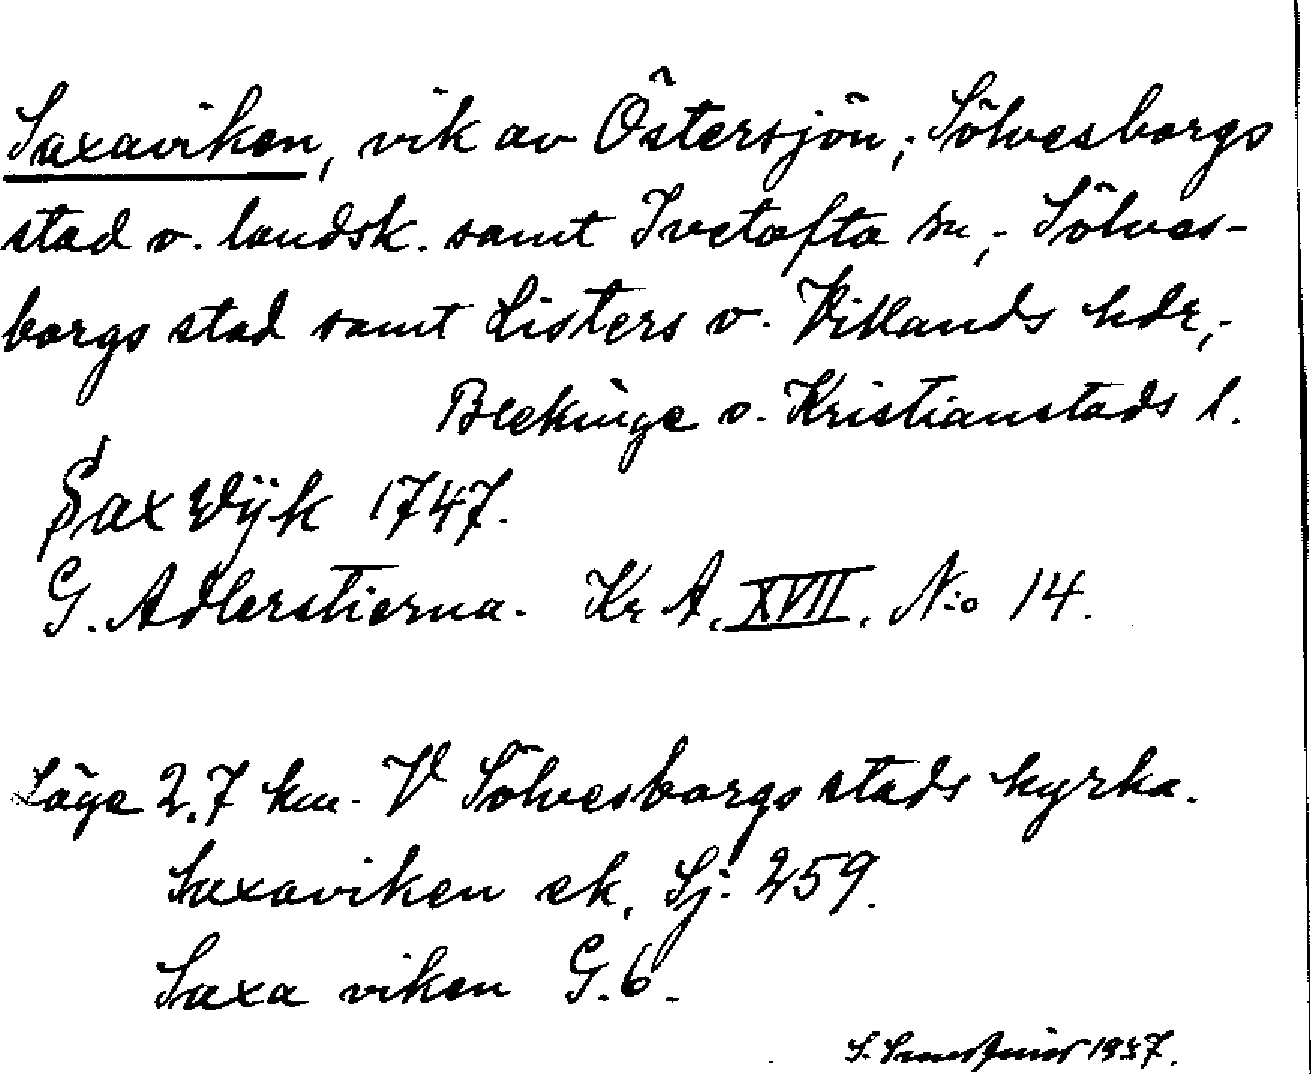 Saxaviken, vik av Östersjön,; Sölvesborgs
stad o. landsk. samt Ivetofta sn,- Sölves-
borgs stad samt Listers o. Villands hdr,-
Blekinge o. Kristianstads l.
Sax Wÿk 1747.
G. Adlerstierna. Kr A. XVII. N:o 14.
Läge 2.7 km. V Sölvesborgs stads kyrka.
Saxaviken ek. Sj: 259.
Saxa viken G.6.
S. 1937.